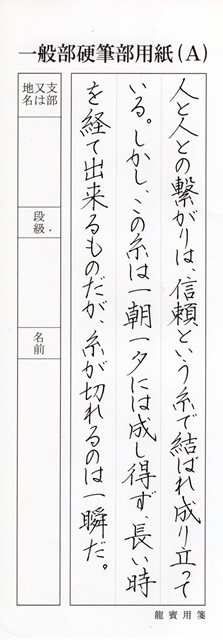 一般部硬筆部用紙(A)
人と人との繋がりは、信頼という糸で結ばれ成り立って
いる。しかし、この糸は一朝一夕には成し得ず、長い時
を経て出来るものだが、糸が切れるのは一瞬だ。
支部又は地名
段級
名前
龍賓用箋